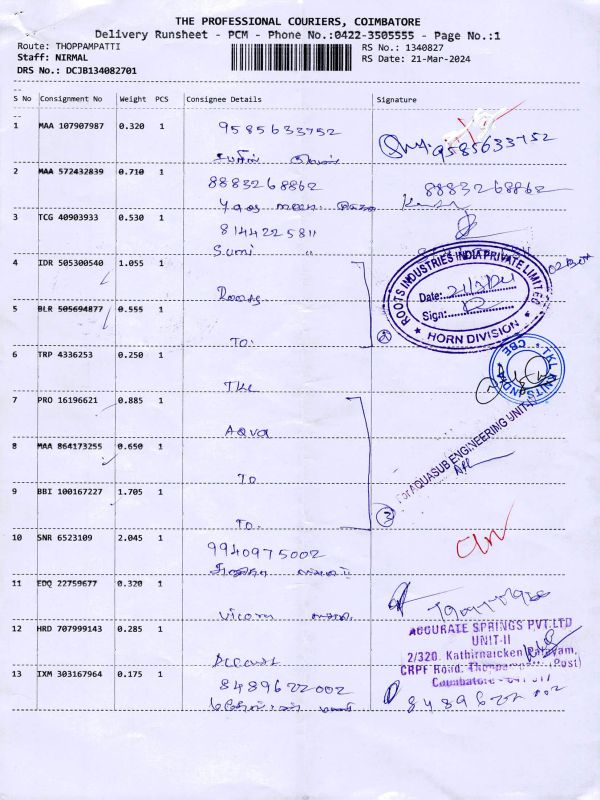 THE PROFESSIONAL COURIERS, COIMBATORE
Delivery Runsheet - PCM - Phone No.:0422-3505555 - Page No.:1
Route: THOPPAMPATTI
RS No.: 1340827
Staff: NIRMAL
RS Date: 21-Mar-2024
DRS No.: DCJB134082701
S No Consignment No Weight PCS Consignee Details Signature
1 MAA 107907987 0.320 1 9585633752
9585633752
2 MAA 572432839 0.710 1 8883268862 8883268862
3 TCG 40903933 0.530 1 8144225811
Sumi "
4 IDR 505300540 1.055 1 Roots
ROOTS INDUSTRIES INDIA PRIVATE LIMITED
Date:
Sign:
HORN DIVISION
5 BLR 505694877 0.555 1 TO.
6 TRP 4336253 0.250 1 TKL
TKL KNITS INDIA CBE
7 PRO 16196621 0.885 1 Aqua
For AQUASUB ENGINEERING UNIT-II
8 MAA 864173255 0.650 1 TO
9 BBI 100167227 1.705 1 TO.
3
10 SNR 6523109 2.045 1 9940975002
11 EDQ 22759677 0.320 1
12 HRD 707999143 0.285 1
ACCURATE SPRINGS PVT.LTD
UNIT-II
2/320. Kathirnaicken
CRPF Road. (Post)
Coimbatore
13 IXM 303167964 0.175 1 8489622002
8489622002